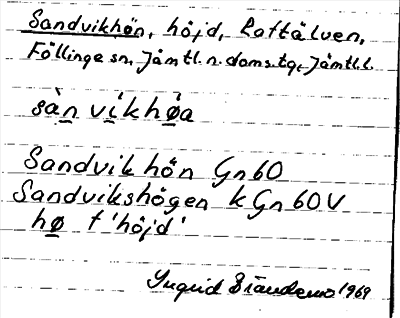 Sandvikhön, höjd, Raftälven,
Föllinge sn, Jämtl. n. doms.tg, Jämtl.l.
sàn víkhøa
Sandvikhön Gn 60
Sandvikshögen k Gn 60 V
hø f 'höjd'
Ingrid 1969